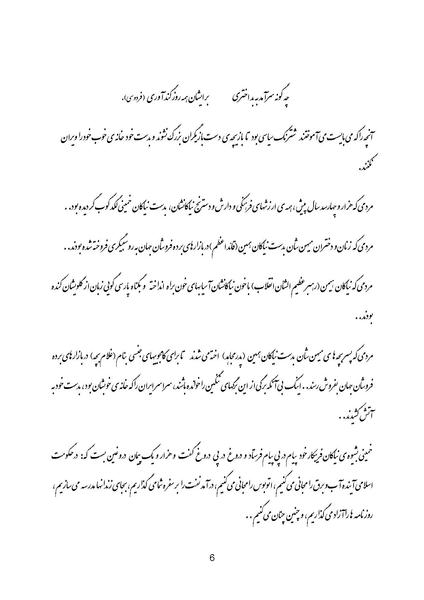 چه گونه سرآمد به بد اختری برایشان همه روز کندآوری (فردوسی).
آنچه را که می بایست می آموختند شترنگ سیاسی بود تا بازیچه ی دست بازیگران بزرگ نشوند و بدست خود خانه ی خوب خود را ویران
نکنند.
مردمی که هزار و چهارسد سال پیش، همه ی ارزشهای فرهنگی و دارش و دسترنج نیاکانشان، بدست نیاکان خمینی لگدکوب گردیده بود. .
مردمی که زنان و دختران میهن شان بدست نیاکان همین (قائد اعظم) در بازارهای برده فروشان جهان به روسپیگری فروخته شده بودند. .
مردمی که نیاکان همین (رهبر عظیم الشان انقلاب) با خون نیاکانشان آسیابهای خون براه انداخته و بگناه پارسی گویی زبان از گلویشان کنده
بودند. .
مردمی که پسربچه های میهن شان بدست نیاکان همین (پدر مجاهد) اخته می شدند تا برای کامجوییهای جنسی بنام (غلام بچه) در بازارهای برده
فروشان جهان بفروش رسند. . اینک بی آنکه برگی از این برگهای ننگین را خوانده باشند، سراسر ایران را که خانه ی خویشان بود، بدست خود به
آتش کشیدند. .
خمینی بشیوه ی نیاکان فریبکار خود پیام در پی پیام فرستاد و دروغ در پی دروغ گفت و هزار و یک پیمان دروغین بست که: در حکومت
اسلامی آینده آب و برق را مجانی می کنیم، اتوبوس را مجانی می کنیم، درآمد نفت را بر سفره شما می گذاریم، بجای زندانها مدرسه می سازیم،
روزنامه ها را آزاد می گذاریم، و چنین چنان می کنیم . .
6